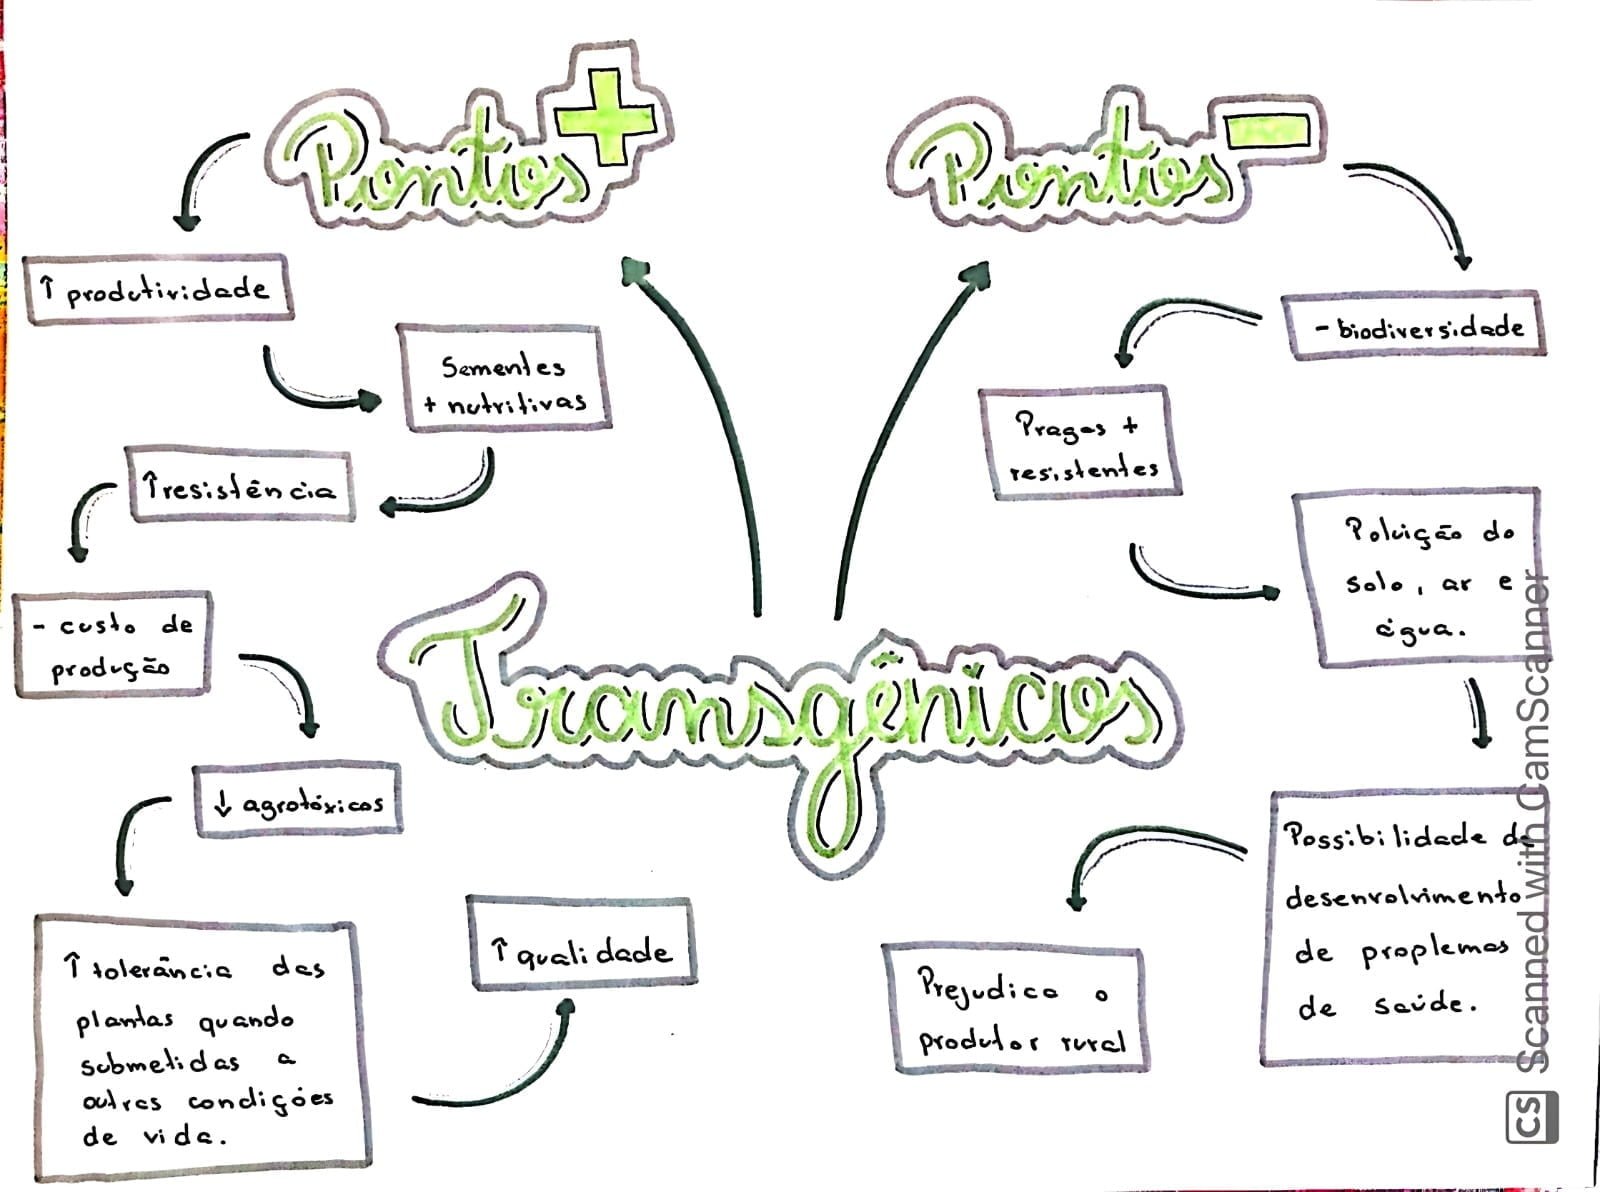 Pontos +
↑ produtividade
Sementes
+ nutritivas
↑ resistência
- custo de
produção
↓ agrotóxicos
↑ tolerância das
plantas quando
submetidas a
outras condições
de vida.
↑ qualidade
Pontos -
- biodiversidade
Pragas +
resistentes
Poluição do
solo, ar e
água.
Possibilidade de
desenvolvimento
de proplemas
de saúde.
Prejudica o
produtor rural
Transgênicos
CS Scanned with CamScanner